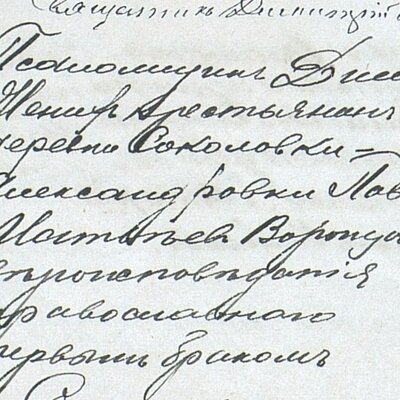 Священникъ Димитрій
Псаломщикъ Дим
Женихъ крестьянинъ
деревни Соколовки-
Александровки Пав
Игнатьев Ворону
вѣроисповѣданія
православнаго
первымъ бракомъ